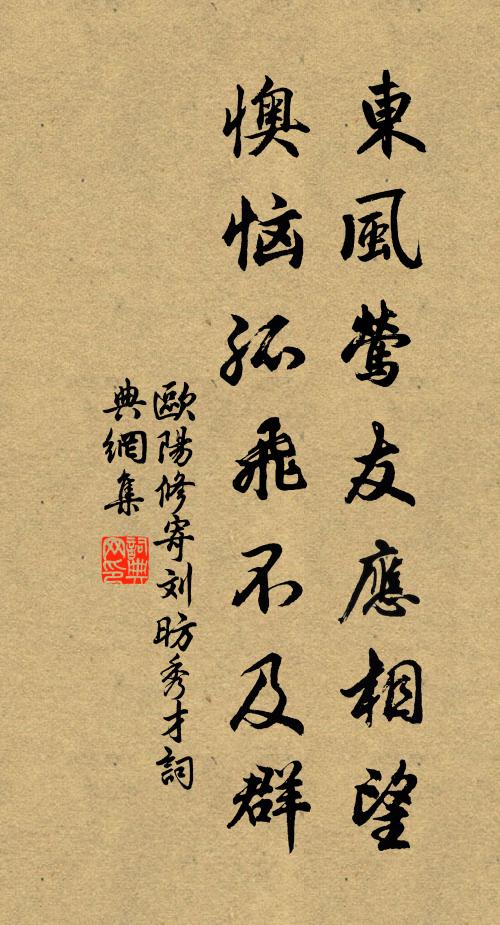 東風鶯友應相望
懊恼孤飛不及群
歐陽修寄刘昉秀才詞
典網集
詞典
网印